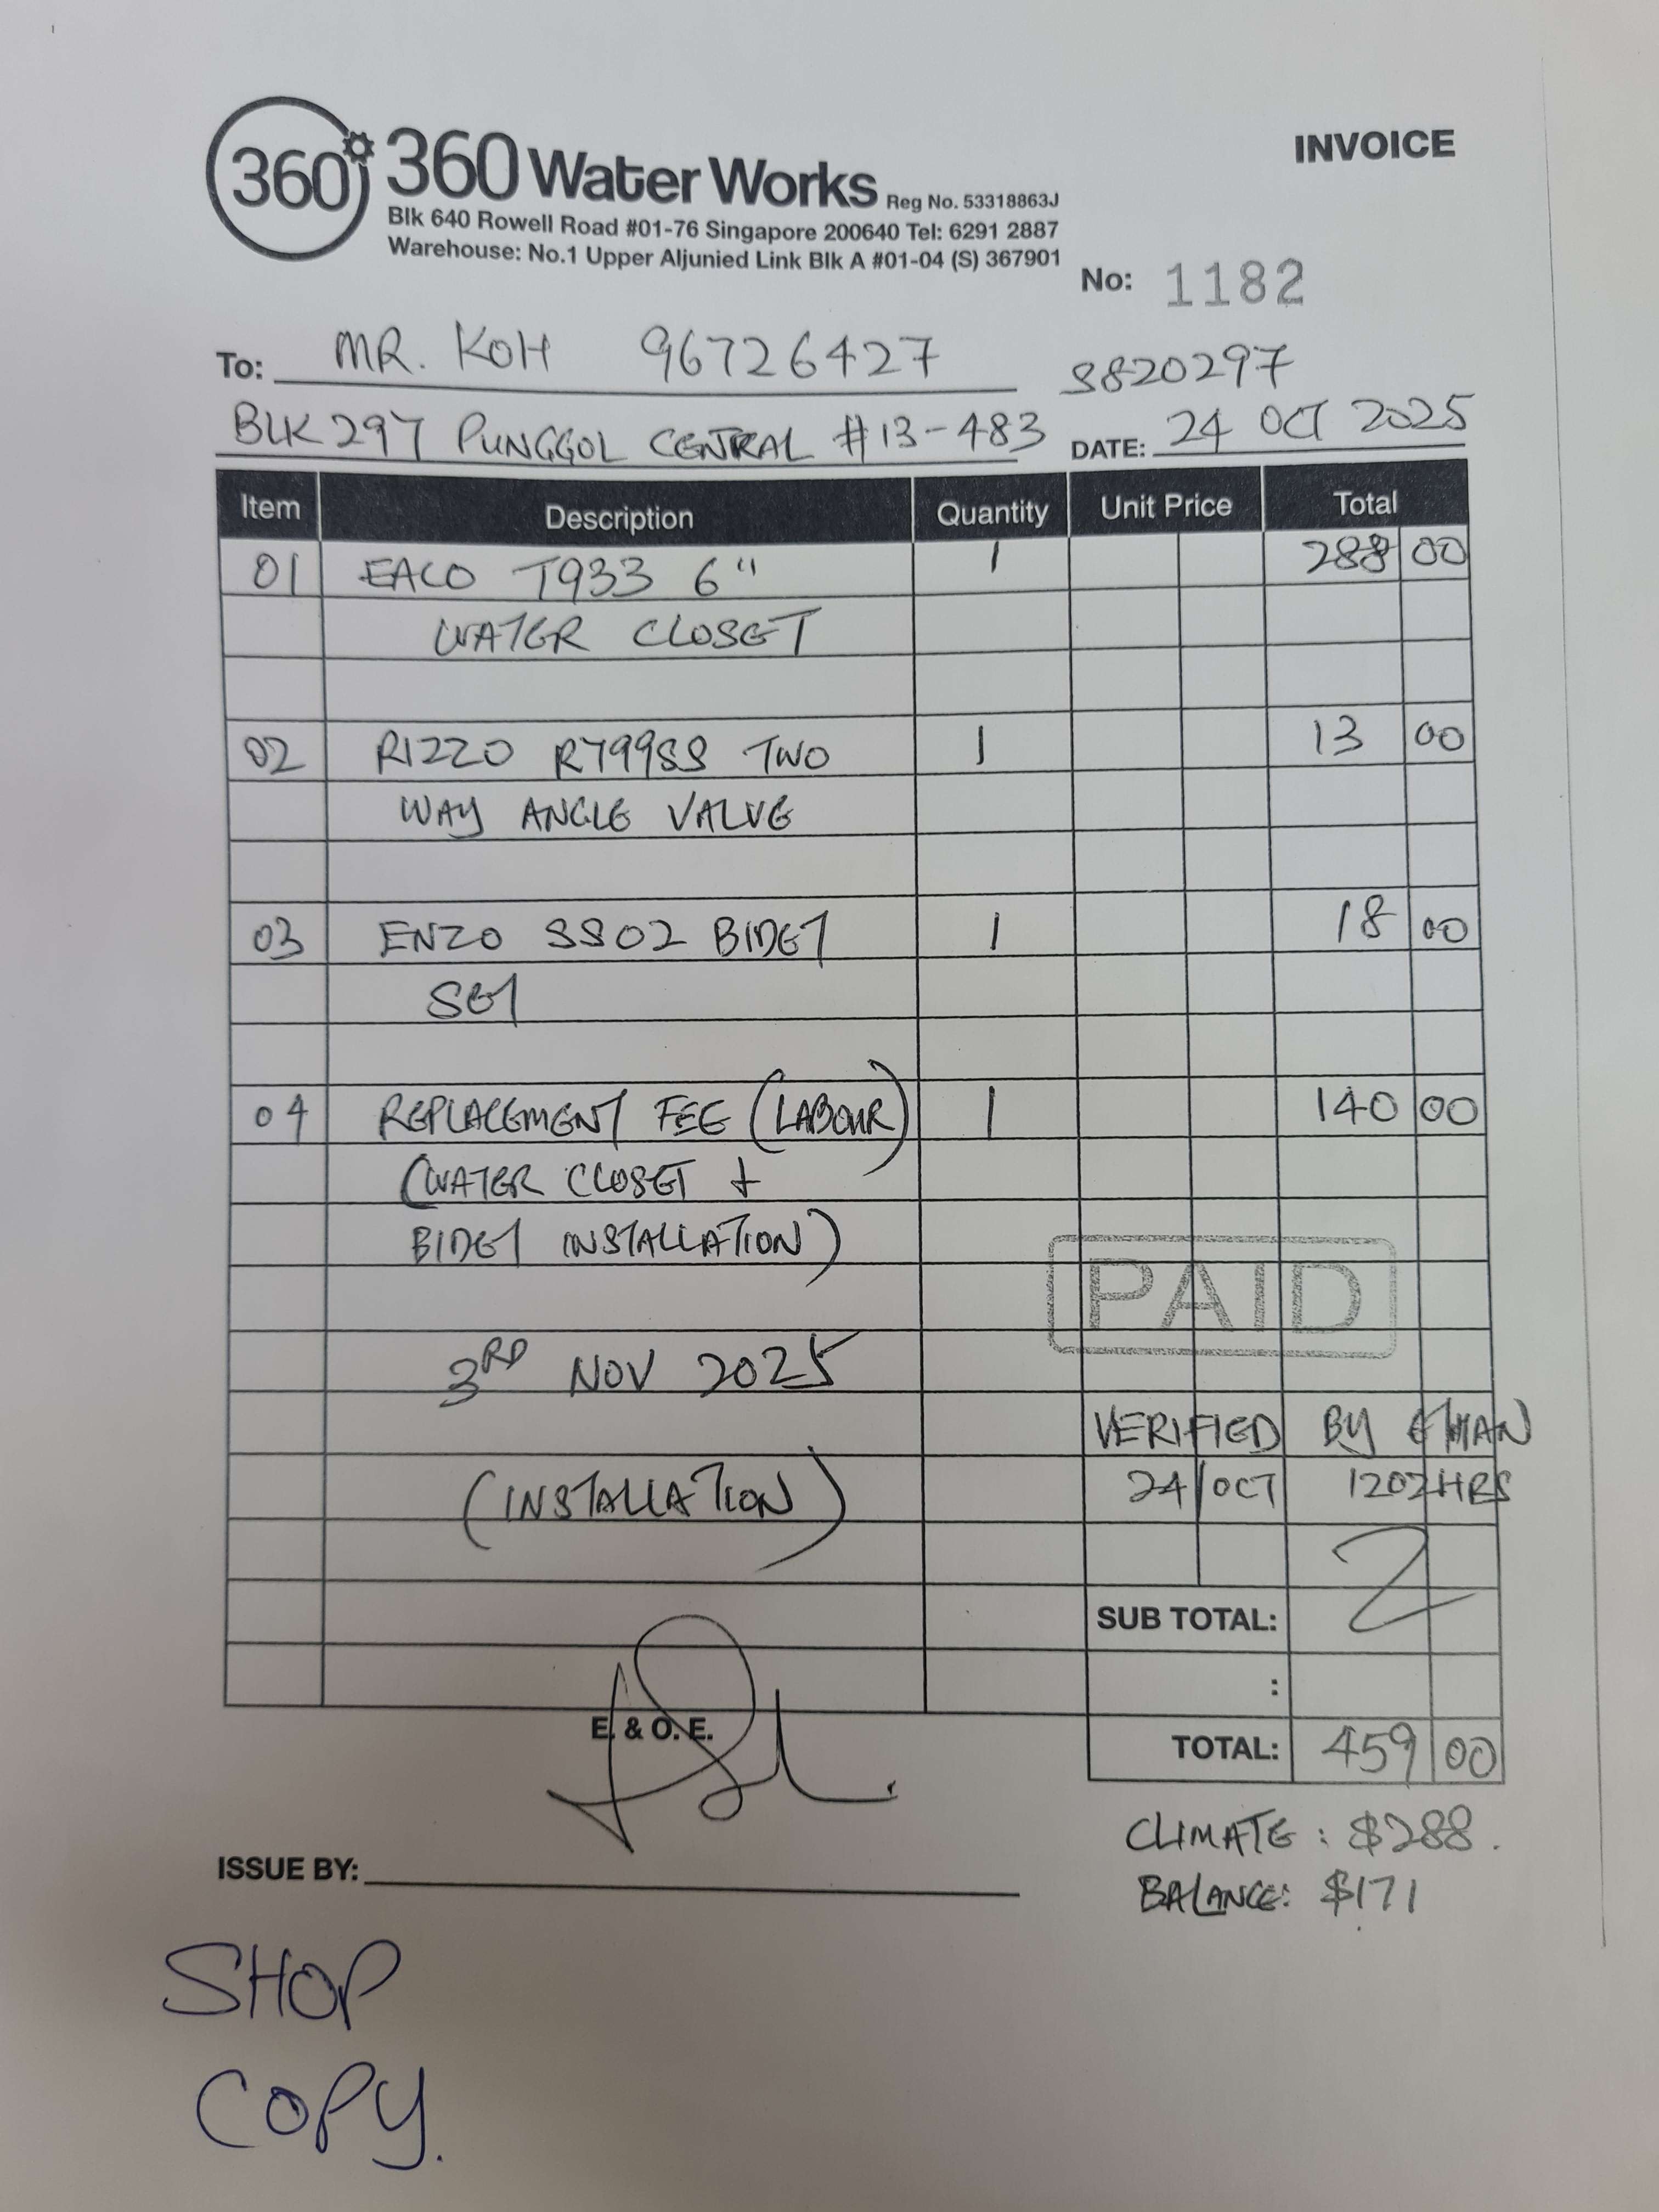 360
360 Water Works Reg No. 53318863J
Blk 640 Rowell Road #01-76 Singapore 200640 Tel: 6291 2887
Warehouse: No.1 Upper Aljunied Link Blk A #01-04 (S) 367901
INVOICE
No: 1182
To: MR. KOH 96726427 S820297
BLK 297 PUNGGOL CENTRAL #13-483 DATE: 24 OCT 2025
Item Description Quantity Unit Price Total
01 EACO T933 6" 1 288 00
WATER CLOSET
02 RIZZO R799SS TWO 1 13 00
WAY ANGLE VALVE
03 ENZO SS02 BIDET 1 18 00
SET
04 REPLACEMENT FEE (LABOUR) 1 140 00
(WATER CLOSET +
BIDET INSTALLATION)
PAID
3RD NOV 2025
VERIFIED BY ETHAN
(INSTALLATION) 24/OCT 1202HRS
SUB TOTAL:
:
E. & O. E.
TOTAL: 459 00
CLIMATE: $288.
ISSUE BY:
BALANCE: $171
SHOP
COPY.